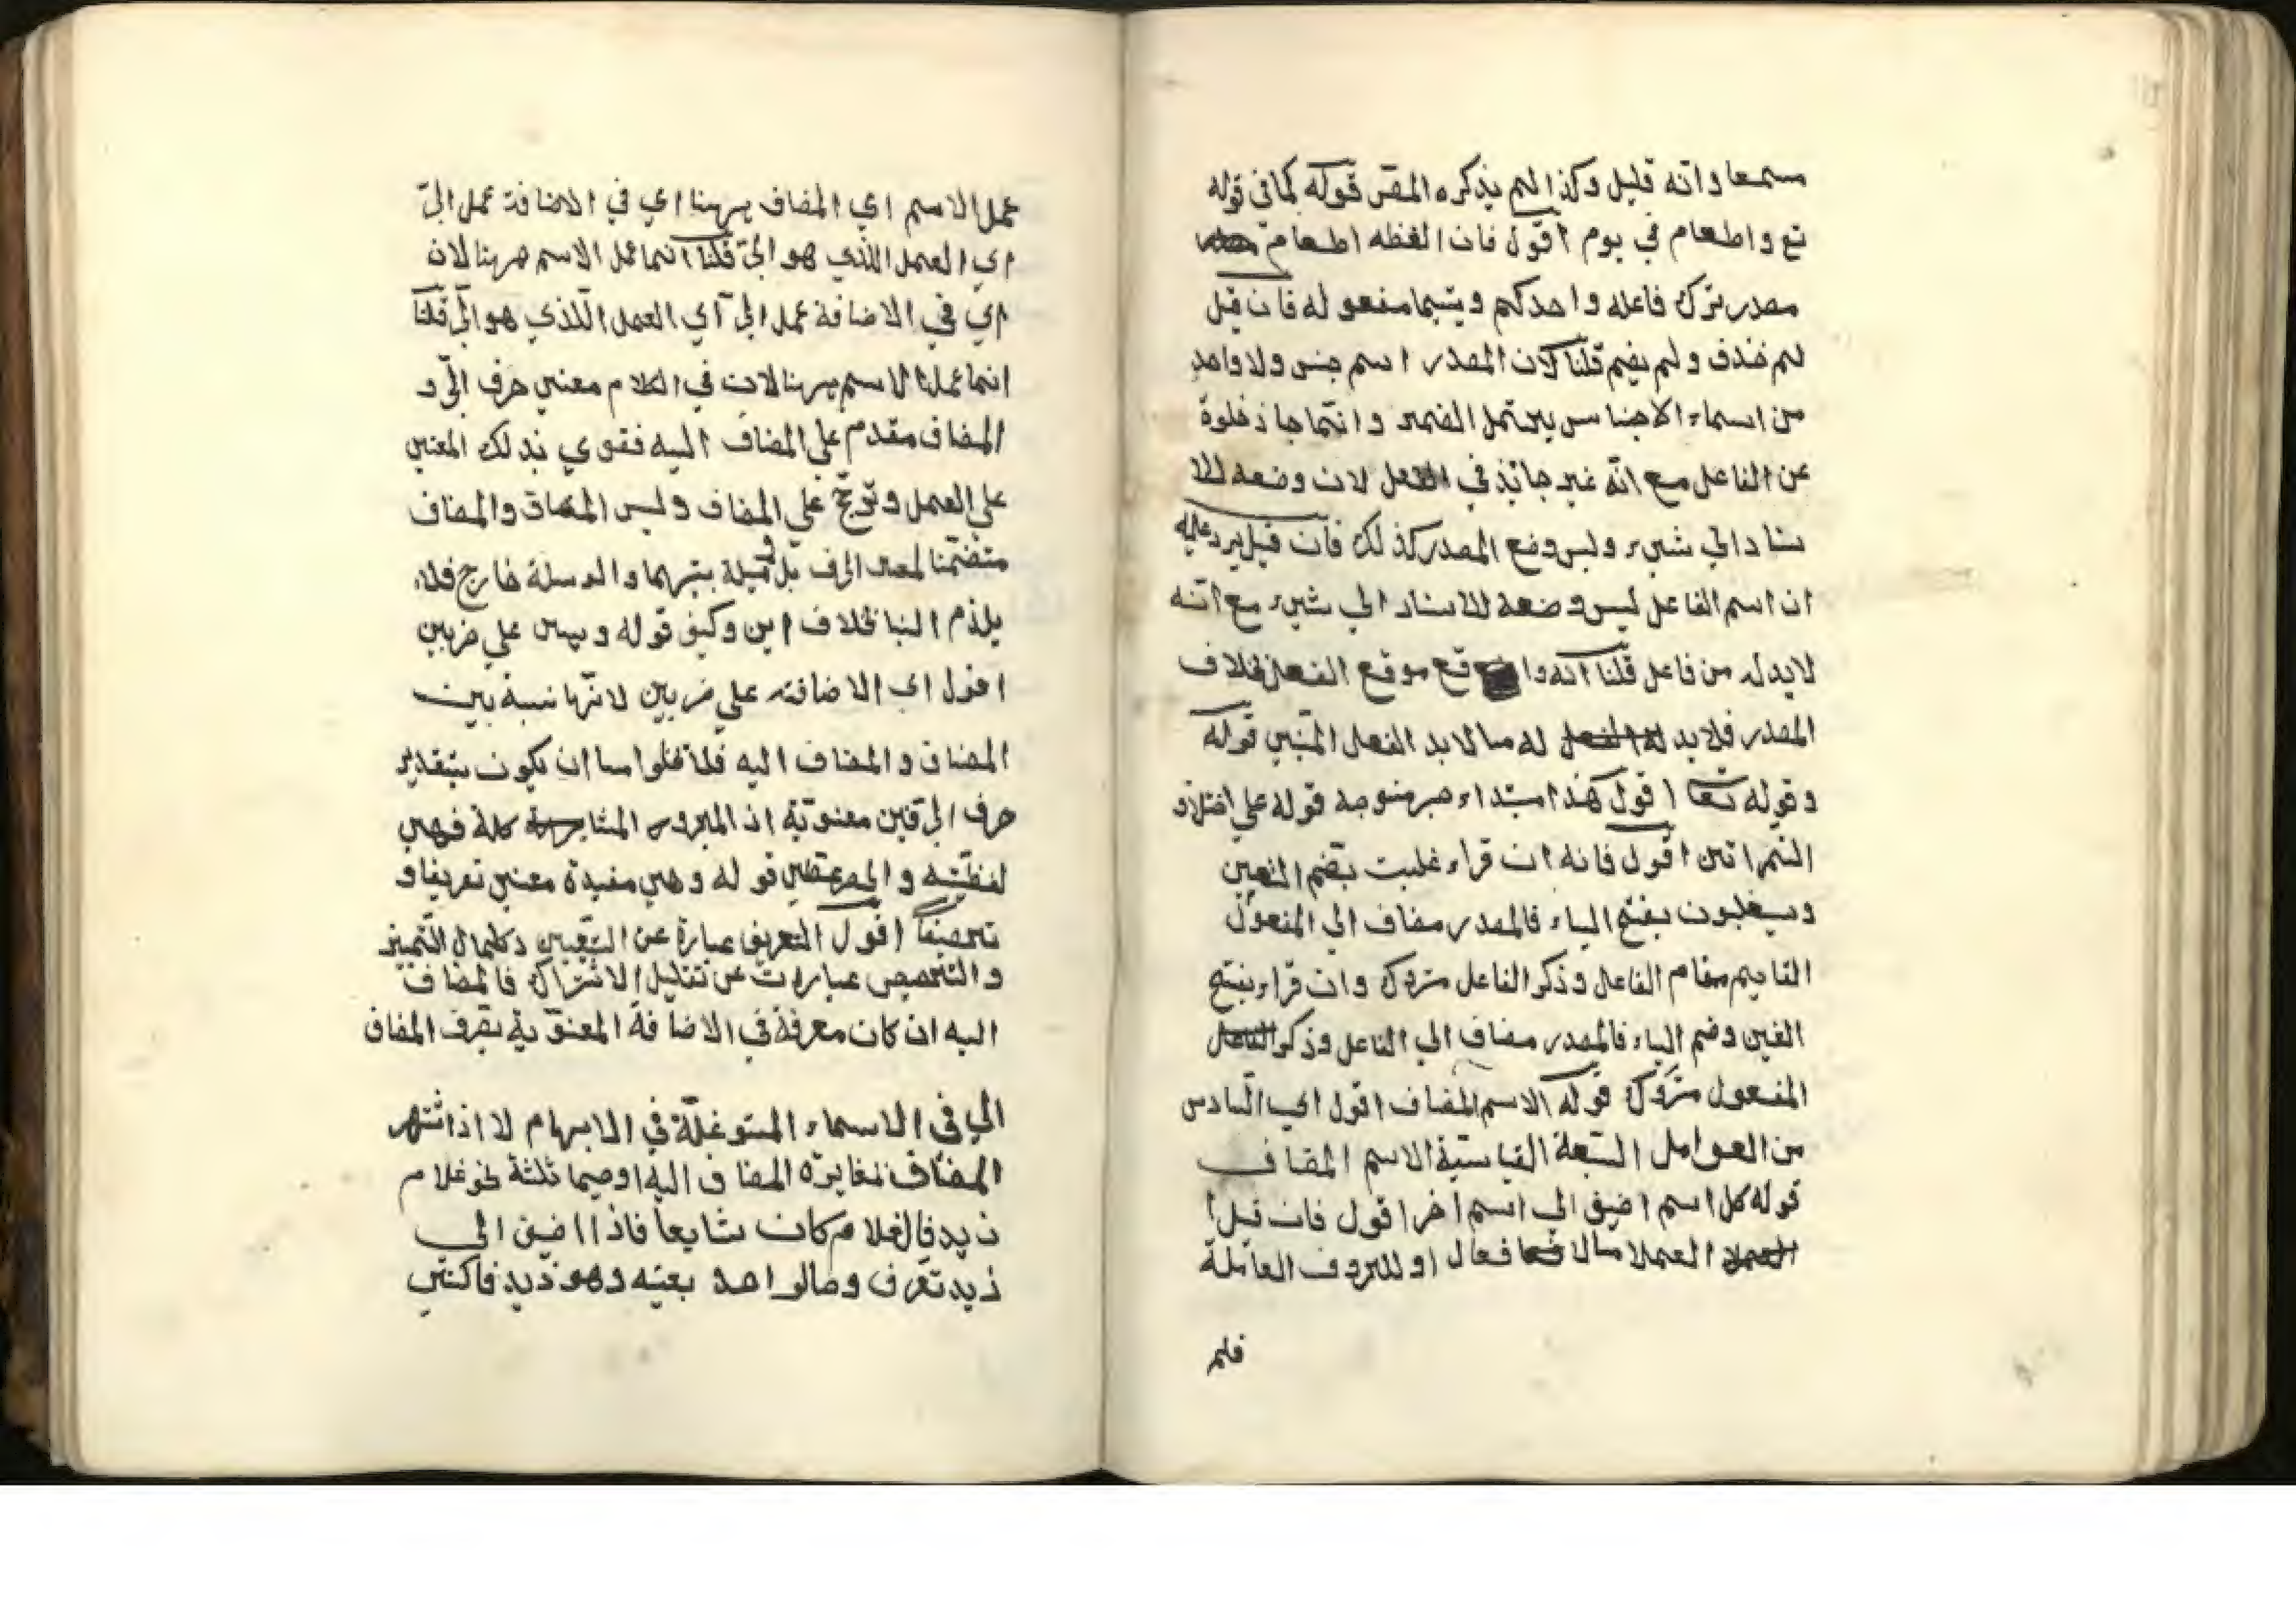 مسمعا وانه قليل وكذا لم يذكره المص قوله كما في قوله
تع واطعام في يوم اقول فان لفظه اطعام
مصدر ترك فاعله واحدكم ويتيما مفعوله فان قيل
لم حذف ولم يضم قلنا لان المصدر اسم جنس ولا واحد
من اسماء الاجناس يحتمل الضمير وانما جاز خلوة
عن الفاعل مع انه غير جائز في الفعل لان وضعه للا
سناد الي شيء وليس وضع المصدر كذلك فان قيل يرد عليه
ان اسم الفاعل ليس وضعه للاسناد الي شيء مع انه
لا بد له من فاعل قلنا انه واقع موقع الفعل بخلاف
المصدر فلا بد له الفعل له مما لا بد الفعل المبني قوله
وقوله تعا اقول هذا مبتداء قوله علي اختلاف
القراتين اقول فانه ان قراء غلبت بضم الغين
وسيغلبون بفتح الياء فالمصدر مضاف الي المفعول
القايم مقام الفاعل وذكر الفاعل متروك وان قراء بفتح
الغين وضم الياء فالمصدر مضاف الي الفاعل وذكر الفاعل
المفعول متروك قوله الاسم المضاف اقول اي السادس
من العوامل السبعة القياسية الاسم المضاف
قوله كل اسم اضيف الي اسم اخر اقول فان قيل
العمل العمل الا فعال او للحروف العاملة
فلم
عمل الاسم اي المضاف ههنا اي في الاضافة عمل الي
اي العمل الذي هو الي قلنا انما عمل الاسم ههنا لان
اي في الاضافة عمل الي اي العمل الذي هو الي قلنا
انما عمل الاسم ههنا لان في الكلام معني حرف الي و
المضاف مقدم علي المضاف اليه فقوي بذلك المعني
علي العمل علي المضاف وليس المضاف والمضاف
متضمنا لمعن الحرف بل وسيلة بينهما والوسلة خارج فلا
يلزم البنا بخلاف اين وكيف قوله وهي علي ضربين
اقول اي الاضافة علي ضربين لانها نسبة بين
المضاف والمضاف اليه فلا تخلوا اما ان يكون بتقدير
حرف الي معنوية اذ كلة فهي
لفظية قوله وهي مفيدة معني تعريفا و
تخصيصا اقول التعريف عبارة عن التعيين وكمال التميز
والتخصيص عبارت عن تقليل الاشتراك فالمضاف
اليه ان كان معرفة في الاضافة المعنوية تعرف المضاف
الي في الاسماء المتوغلة في الابهام لا اذا شتهر
المضاف بمغايرة المضاف اليه ثلثة نحو غلام
زيد فالغلام كان شايعا فاذا اضيف الي
زيد تعرف وصا لواحد بعينه وهو زيد فاكتسي